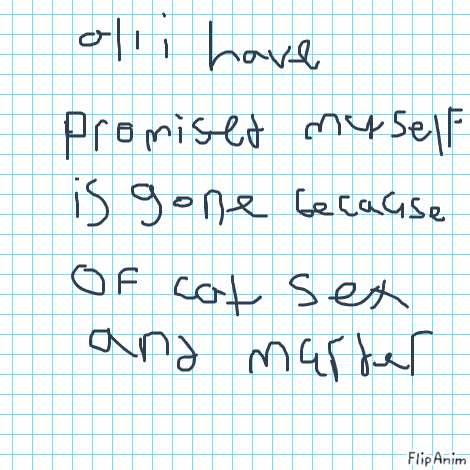 all i have
promised myself
is gone because
of cat sex
and murder
FlipAnim